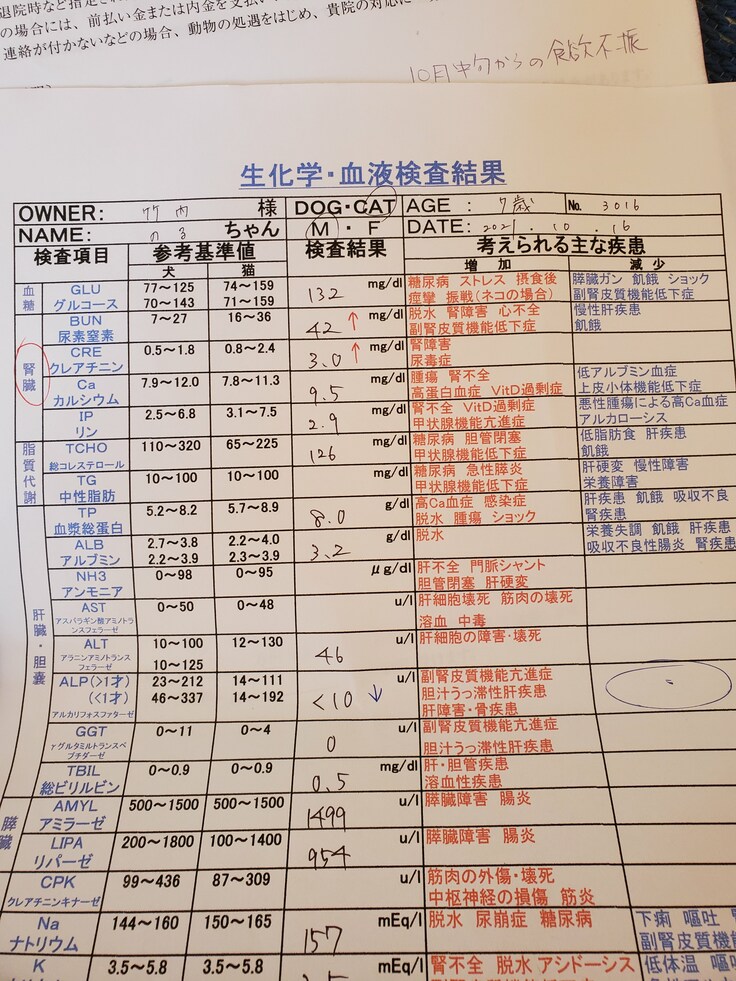 退院時など指定さ
の場合には、前払い金または内金を支払い
連絡が付かないなどの場合、動物の処遇をはじめ、貴院の対応に
10月中旬からの食欲不振
生化学・血液検査結果
OWNER: 竹内 様 DOG・CAT AGE : 7歳 No. 3016
NAME: のる ちゃん M・F DATE: 2021.10.16
検査項目 参考基準値 検査結果 考えられる主な疾患
犬 猫 増加 減少
血糖 GLU 77～125 74～159 132 mg/dl 糖尿病 ストレス 摂食後 膵臓ガン 飢餓 ショック
グルコース 70～143 71～159 痙攣 振戦(ネコの場合) 副腎皮質機能低下症
腎臓 BUN 7～27 16～36 42 ↑ mg/dl 脱水 腎障害 心不全 慢性肝疾患
尿素窒素 副腎皮質機能低下症 飢餓
CRE 0.5～1.8 0.8～2.4 3.0 ↑ mg/dl 腎障害
クレアチニン 尿毒症
Ca 7.9～12.0 7.8～11.3 9.5 mg/dl 腫瘍 腎不全 低アルブミン血症
カルシウム 高蛋白血症 VitD過剰症 上皮小体機能低下症
IP 2.5～6.8 3.1～7.5 2.9 mg/dl 腎不全 VitD過剰症 悪性腫瘍による高Ca血症
リン 甲状腺機能亢進症 アルカローシス
脂質代謝 TCHO 110～320 65～225 126 mg/dl 糖尿病 胆管閉塞 低脂肪食 肝疾患
総コレステロール 甲状腺機能低下症 飢餓
TG 10～100 10～100 mg/dl 糖尿病 急性膵炎 肝硬変 慢性障害
中性脂肪 甲状腺機能低下症 栄養障害
肝臓・胆嚢 TP 5.2～8.2 5.7～8.9 8.0 g/dl 高Ca血症 感染症 肝疾患 飢餓 吸収不良
血漿総蛋白 脱水 腫瘍 ショック 腎疾患
ALB 2.7～3.8 2.2～4.0 3.2 g/dl 脱水 栄養失調 飢餓 肝疾患
アルブミン 2.2～3.9 2.3～3.9 吸収不良性腸炎 腎疾患
NH3 0～98 0～95 μg/dl 肝不全 門脈シャント
アンモニア 胆管閉塞 肝硬変
AST 0～50 0～48 u/l 肝細胞壊死 筋肉の壊死
アスパラギン酸アミノトランスフェラーゼ 溶血 中毒
ALT 10～100 12～130 46 u/l 肝細胞の障害・壊死
アラニンアミノトランスフェラーゼ 10～125
ALP(>1才) 23～212 14～111 <10 ↓ u/l 副腎皮質機能亢進症
(<1才) 46～337 14～192 胆汁うっ滞性肝疾患
アルカリフォスファターゼ 肝障害・骨疾患
GGT 0～11 0～4 0 u/l 副腎皮質機能亢進症
γグルタミルトランスペプチダーゼ 胆汁うっ滞性肝疾患
TBIL 0～0.9 0～0.9 0.5 mg/dl 肝・胆管疾患
総ビリルビン 溶血性疾患
膵臓 AMYL 500～1500 500～1500 1499 u/l 膵臓障害 腸炎
アミラーゼ
LIPA 200～1800 100～1400 954 u/l 膵臓障害 腸炎
リパーゼ
CPK 99～436 87～309 u/l 筋肉の外傷・壊死
クレアチンキナーゼ 中枢神経の損傷 筋炎
Na 144～160 150～165 157 mEq/l 脱水 尿崩症 糖尿病 下痢 嘔吐
ナトリウム 副腎皮質機
K 3.5～5.8 3.5～5.8 mEq/l 腎不全 脱水 アシドーシス 低体温 嘔